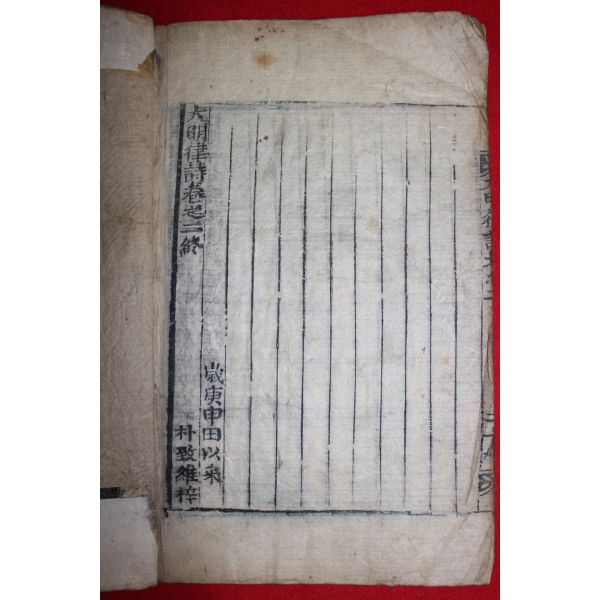 大明律詩卷之二終
歲庚申田以采
朴致維梓